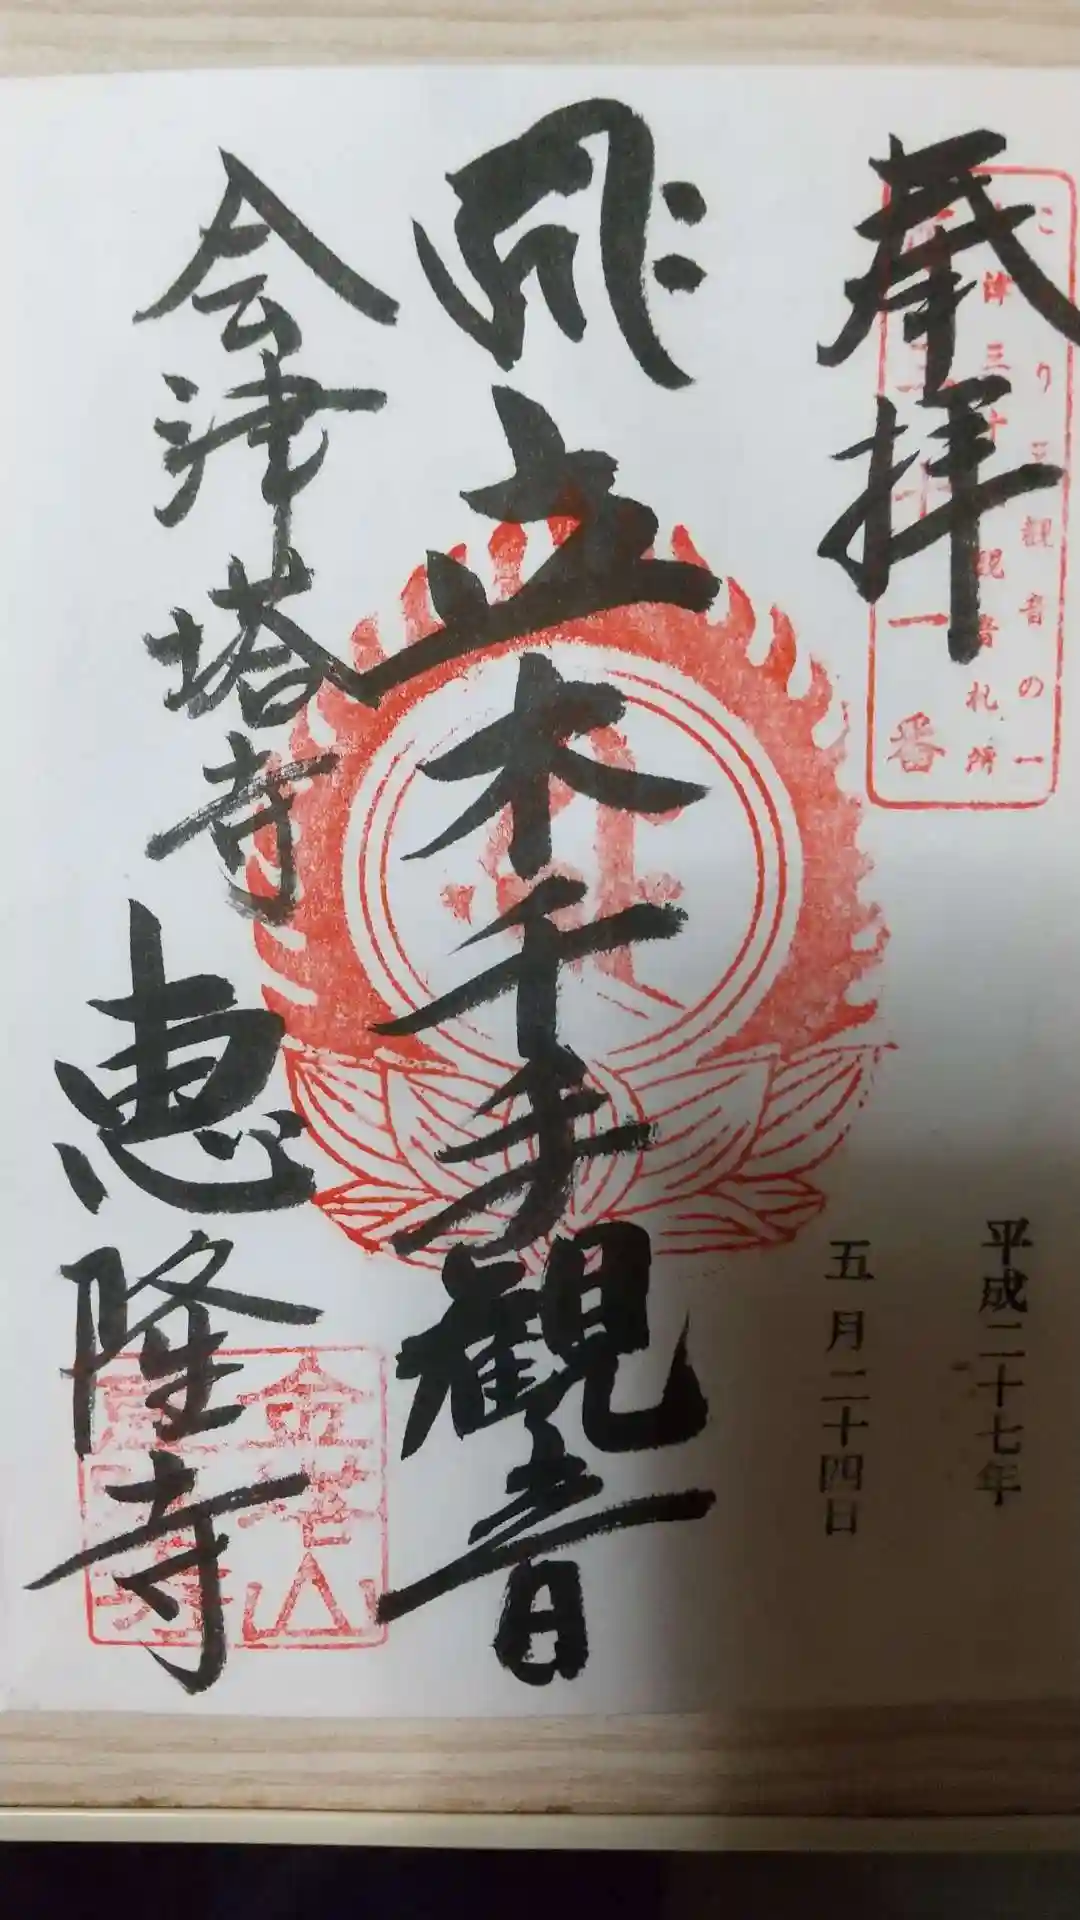 奉拝
こ り三観音の一
津三十 観音札所
三十一番
平成二十七年
五月二十四日
立木千手觀音
会津塔寺
恵隆寺
金塔山
恵隆寺